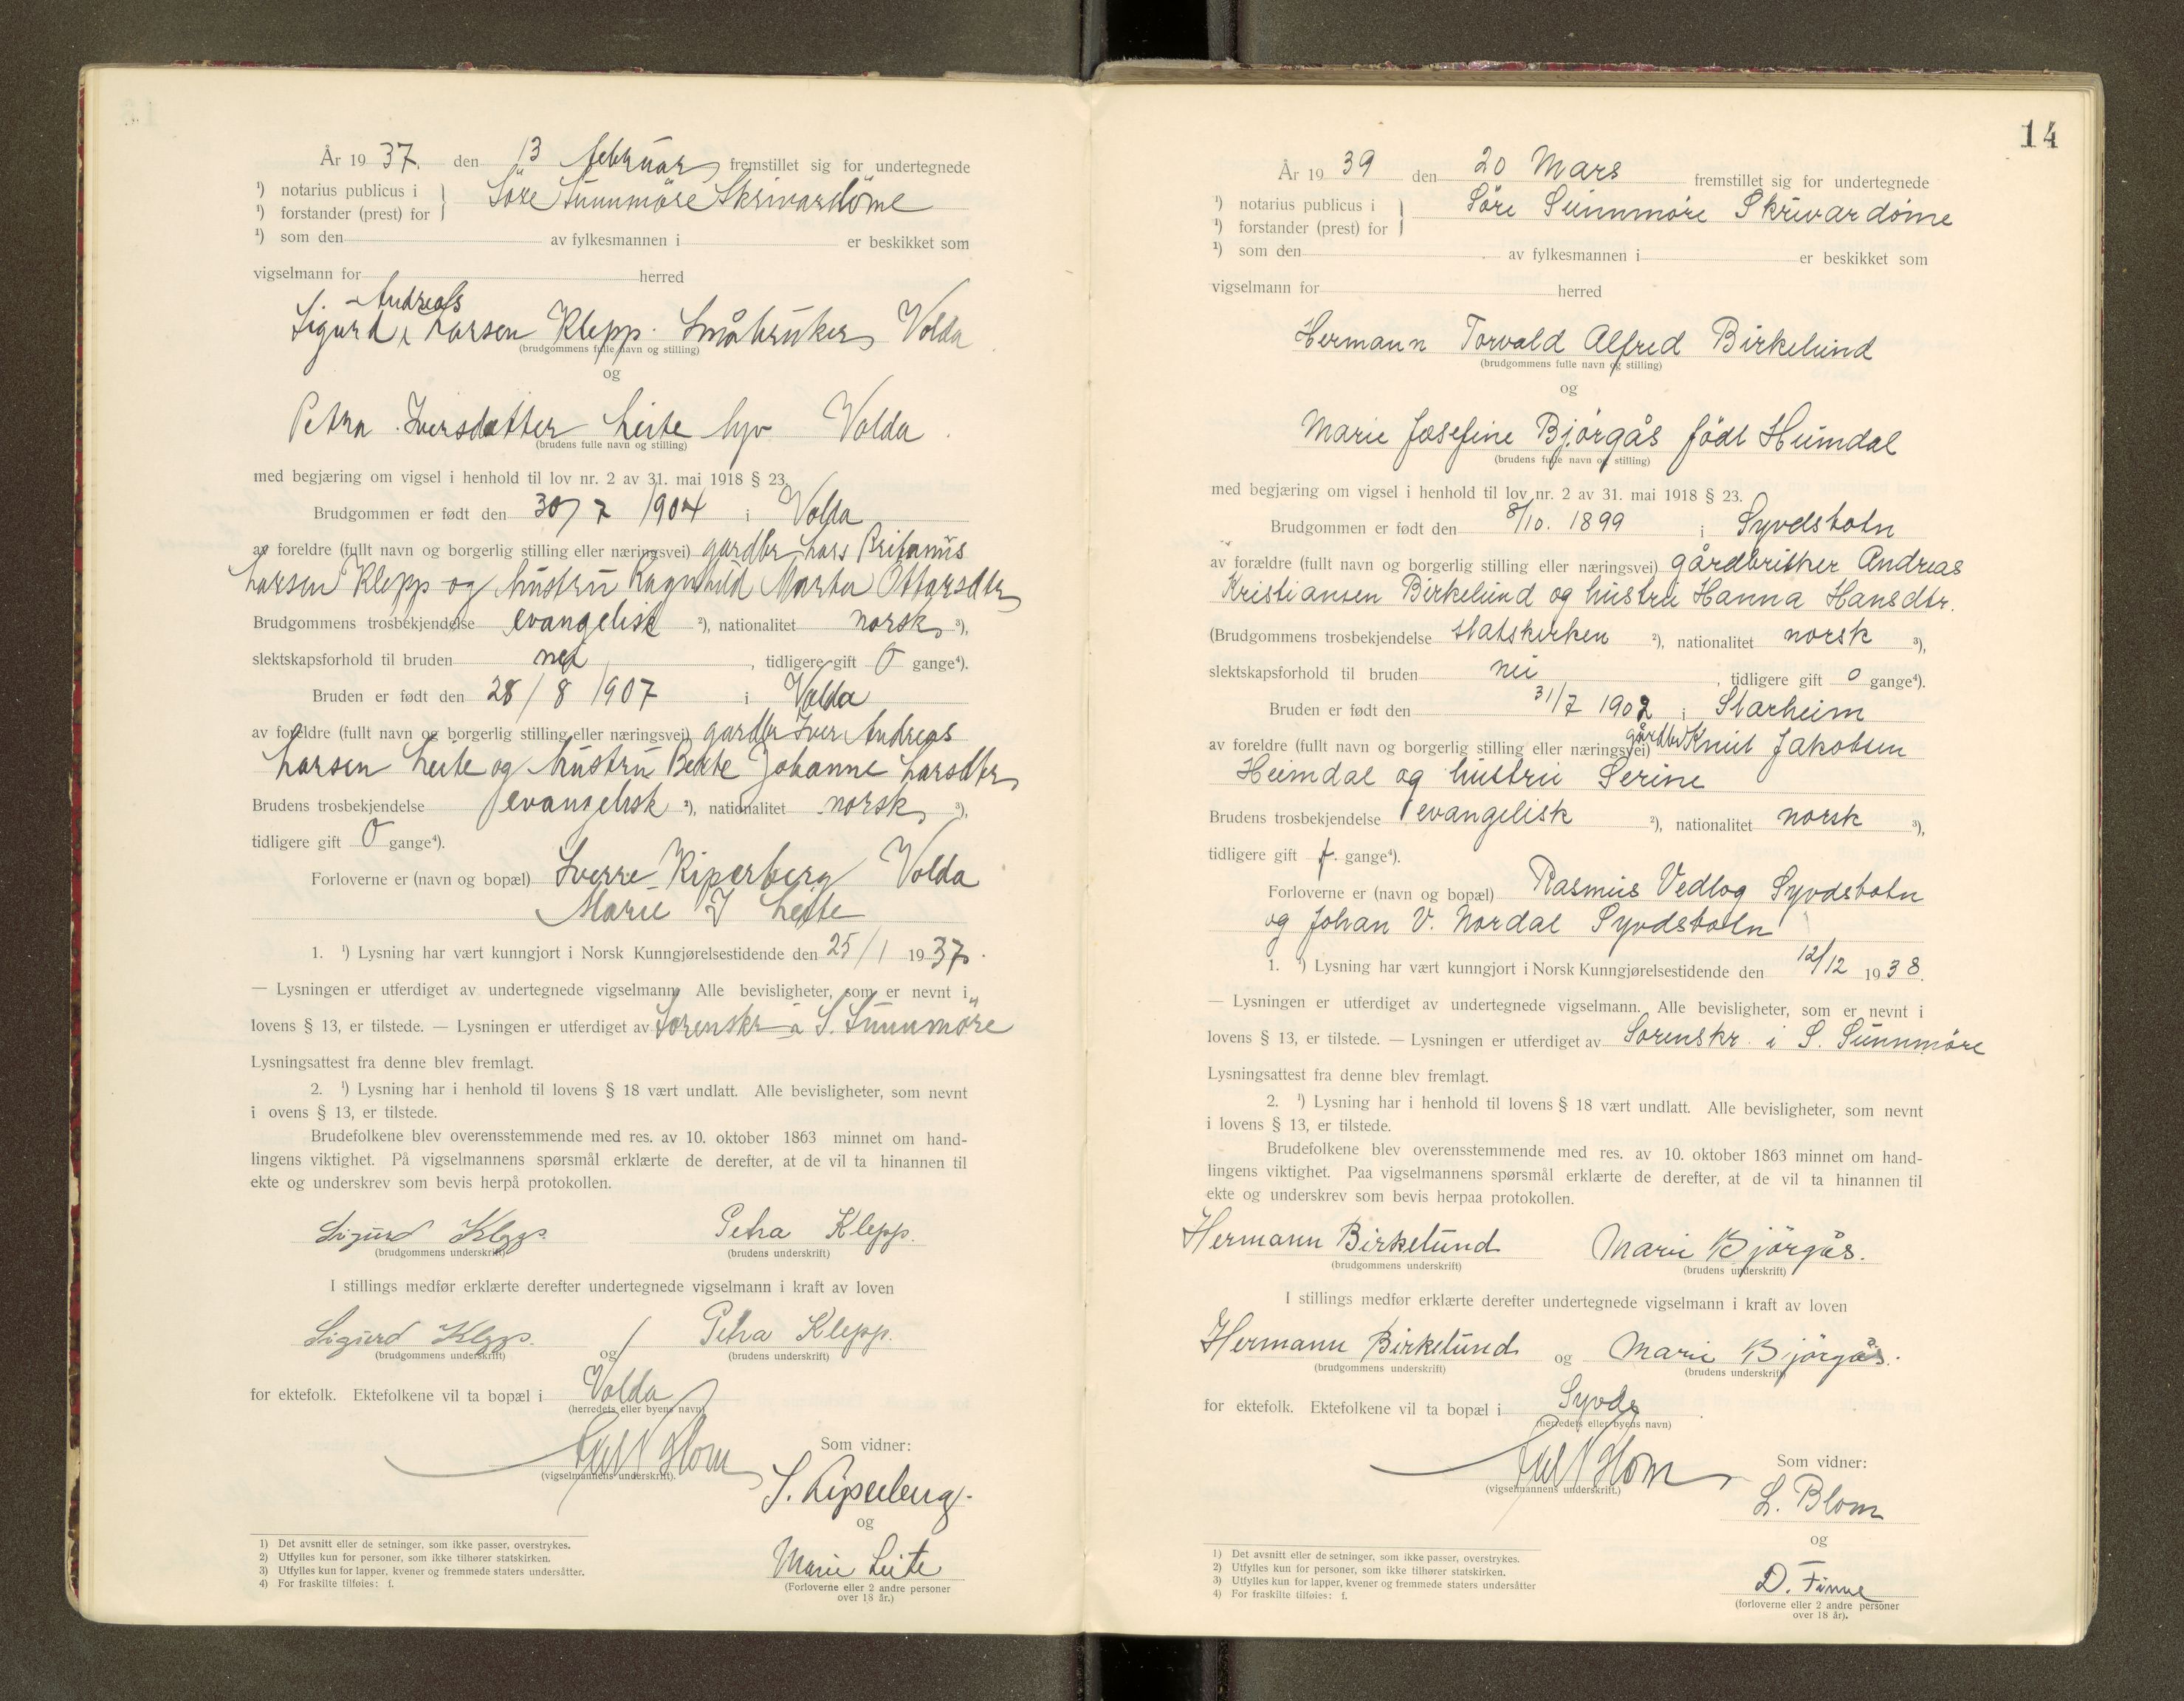 År 1937. den 13 februar fremstillet sig for undertegnede
¹) notarius publicus i
¹) forstander (prest) for
Söre Sunnmöre Skrivardöme
¹) som den av fylkesmannen i er beskikket som
vigselmann for herred
Andreas
Sigurd Larsen Klepp. Småbruker Volda
(brudgommens fulle navn og stilling)
og
Petra Iversdatter Leite hjv Volda
(brudens fulle navn og stilling)
med begjæring om vigsel i henhold til lov nr. 2 av 31. mai 1918 § 23.
Brudgommen er født den 30/7 1904 i Volda
av foreldre (fullt navn og borgerlig stilling eller næringsvei) gardbr Lars
Larsen Klepp og hustru Ragnhild Marta Ottarsdtr
Brudgommens trosbekjendelse evangelisk ²), nationalitet norsk ³),
slektskapsforhold til bruden nei, tidligere gift 0 gange⁴).
Bruden er født den 28/8 1907 i Volda
av foreldre (fullt navn og borgerlig stilling eller næringsvei) gardbr Iver Andreas
Larsen Leite og hustru Berte Johanne Larsdtr
Brudens trosbekjendelse evangelisk ²), nationalitet norsk ³),
tidligere gift 0 gange⁴).
Forloverne er (navn og bopæl) Sverre Riperberg Volda
Marie I Leite
1. ¹) Lysning har vært kunngjort i Norsk Kunngjørelsestidende den 25/1 1937.
— Lysningen er utferdiget av undertegnede vigselmann. Alle bevisligheter, som er nevnt i
lovens § 13, er tilstede. — Lysningen er utferdiget av Sorenskr a S. Sunnmöre
Lysningsattest fra denne blev fremlagt.
2. ¹) Lysning har i henhold til lovens § 18 vært undlatt. Alle bevisligheter, som nevnt
i ovens § 13, er tilstede.
Brudefolkene blev overensstemmende med res. av 10. oktober 1863 minnet om hand-
lingens viktighet. På vigselmannens spørsmål erklærte de derefter, at de vil ta hinannen til
ekte og underskrev som bevis herpå protokollen.
Sigurd Klepp. Petra Klepp.
(brudgommens underskrift) (brudens underskrift)
I stillings medfør erklærte derefter undertegnede vigselmann i kraft av loven
Sigurd Klepp. og Petra Klepp.
(brudgommens underskrift) (brudens underskrift)
for ektefolk. Ektefolkene vil ta bopæl i Volda
(herredets eller byens navn)
(vigselmannens underskrift).
Som vidner:
S. Riperberg.
og
Marie Leite
(Forloverne eller 2 andre personer
over 18 år.)
1) Det avsnitt eller de setninger, som ikke passer, overstrykes.
2) Utfylles kun for personer, som ikke tilhører statskirken.
3) Utfylles kun for lapper, kvener og fremmede staters undersåtter.
4) For fraskilte tilføies: f.
14
År 1939 den 20 Mars fremstillet sig for undertegnede
¹) notarius publicus i
¹) forstander (prest) for
Söre Sunnmöre Skrivardöme
¹) som den av fylkesmannen i er beskikket som
vigselmann for herred
Hermann Torvald Alfred Birkelund
(brudgommens fulle navn og stilling)
og
Marie Josefine Bjórgås født Heimdal
(brudens fulle navn og stilling)
med begjæring om vigsel i henhold til lov nr. 2 av 31. mai 1918 § 23.
Brudgommen er født den 8/10. 1899 i Syvdsbotn
av forældre (fullt navn og borgerlig stilling eller næringsvei) gårdbruker Andreas
Kristiansen Birkelund og hustru Hanna Hansdtr.
(Brudgommens trosbekjendelse statskirken ²), nationalitet norsk ³),
slektskapsforhold til bruden nei, tidligere gift 0 gange⁴).
Bruden er født den 31/7 1902 i Starheim
av foreldre (fullt navn og borgerlig stilling eller næringsvei) gårdbr Knut Jakobsen
Heimdal og hustru Serine
Brudens trosbekjendelse evangelisk ²), nationalitet norsk ³),
tidligere gift f. gange⁴).
Forloverne er (navn og bopæl) Rasmus Vedlog Syvdsbotn
og Johan V. Nordal Syvdsbotn
1. ¹) Lysning har vært kunngjort i Norsk Kunngjørelsestidende den 12/12 1938.
— Lysningen er utferdiget av undertegnede vigselmann. Alle bevisligheter, som er nevnt i
lovens § 13, er tilstede. — Lysningen er utferdiget av Sorenskr. i S. Sunnmöre
Lysningsattest fra denne blev fremlagt.
2. ¹) Lysning har i henhold til lovens § 18 vært undlatt. Alle bevisligheter, som nevnt
i lovens § 13, er tilstede.
Brudefolkene blev overensstemmende med res. av 10. oktober 1863 minnet om hand-
lingens viktighet. Paa vigselmannens spørsmål erklærte de derefter, at de vil ta hinannen til
ekte og underskrev som bevis herpaa protokollen.
Hermann Birkelund Marie Bjørgås.
(brudgommens underskrift) (brudens underskrift)
I stillings medfør erklærte derefter undertegnede vigselmann i kraft av loven
Hermann Birkelund og Marie Bjørgås.
(brudgommens underskrift) (brudens underskrift)
for ektefolk. Ektefolkene vil ta bopæl i Syvde
(herredets eller byens navn)
(vigselmannens underskrift.)
Som vidner:
L. Blom
og
D. Finne
(forloverne eller 2 andre personer
over 18 år).
1) Det avsnitt eller de setninger, som ikke passer, overstrykes.
2) Utfylles kun for personer, som ikke tilhører statskirken.
3) Utfylles kun for lapper, kvener og fremmede staters undersåtter
4) For fraskilte tilføies: f.